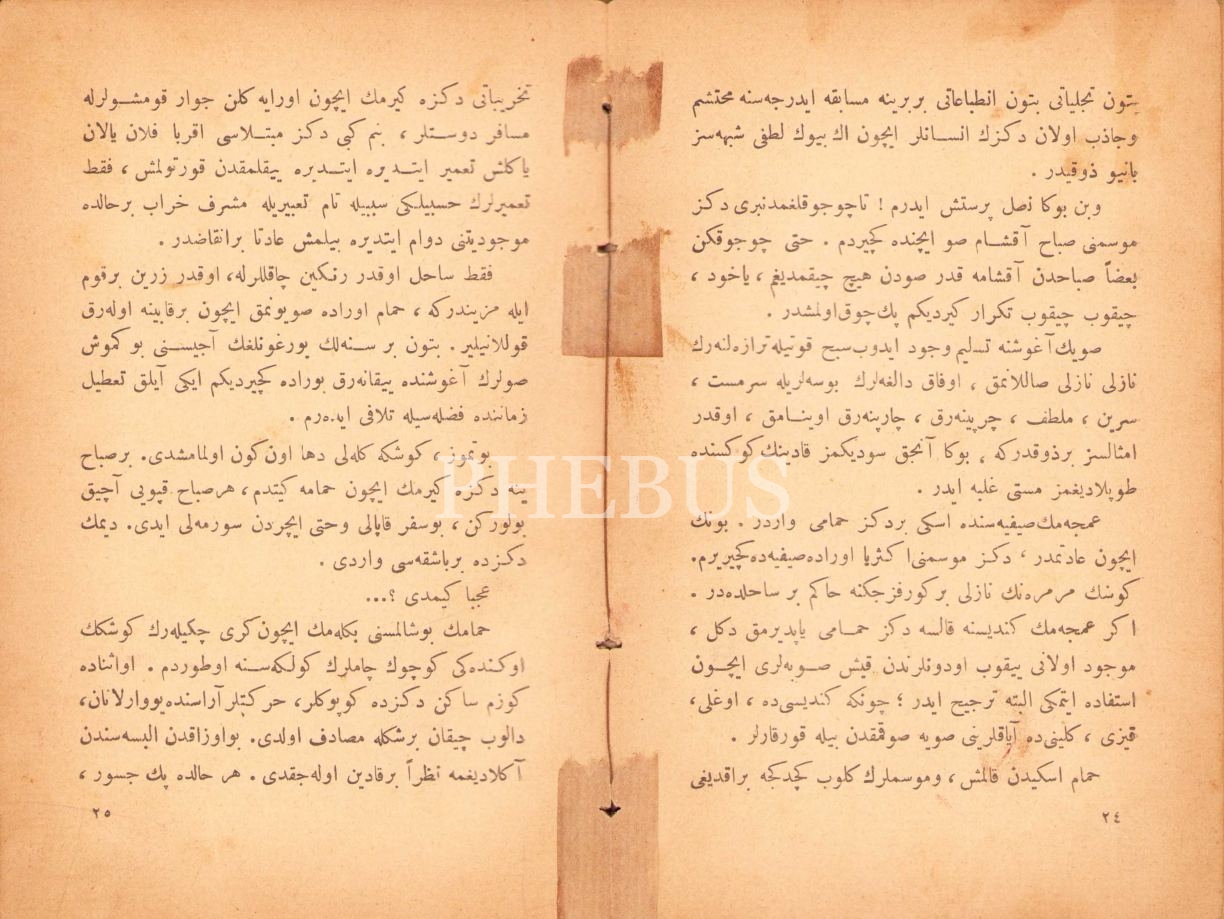 بتون تجلیاتی بتون انطباعاتی بربرینه مسابقه ایدرجه‌سنه محتشم
وجاذب اولان دكزك انسانلر ایچون اك بیوك لطفی شبهه‌سز
بانیو ذوقیدر .
وبن بوكا نصل پرستش ایدرم ! تاچوجوقلغمدنبری دكز
موسمنی صباح آقشام صو ایچنده كچیردم . حتی چوجوقكن
بعضاً صباحدن آقشامه قدر صودن هیچ چیقمدیغم ، یاخود ،
چیقوب چیقوب تكرار كیردیكم پك چوق اولمشدر .
صویك آغوشنه تسلیم وجود ایدوب سبح قوتیله ترازه‌لنه‌رك
نازلی نازلی صاللانمق ، اوفاق دالغه‌لرك بوسه‌لریله سرمست ،
سرین ، ملطف ، چرپینه‌رق ، چارپنه‌رق اوینامق ، اوقدر
امثالسز برذوقدركه ، بوكا آنجق سودیكمز قادینك كوكسنده
طوپلادیغمز مستی غلبه ایدر .
عمجه‌مك صیفیه‌سنده اسكی بردكز حمامی واردر . بونك
ایچون عادتمدر ، دكز موسمنی اكثریا اوراده صیفیه‌ده كچیریرم.
كوشك مرمره‌نك نازلی بر كورفزجكنه حاكم بر ساحلده‌در .
اكر عمجه‌مك كندیسنه قالسه دكز حمامی یاپدیرمق دكل ،
موجود اولانی ییقوب اودونلرندن قیش صوبه‌لری ایچون
استفاده ایتمكی البته ترجیح ایدر ؛ چونكه كندیسی‌ده ، اوغلی ،
قیزی ، كلینی‌ده آیاقلرینی صویه صوقمقدن بیله قورقارلر .
حمام اسكیدن قالمش ، وموسملرك كلوب كچدكجه براقدیغی
٢٤
تخریباتی دكزه كیرمك ایچون اورایه كلن جوار قومشولرله
مسافر دوستلر ، بنم كبی دكز مبتلاسی اقربا فلان یالان
یاكلش تعمیر ایتدیره ایتدیره ییقلمقدن قورتولمش ، فقط
تعمیرلرك حسبیلكی سببیله تام تعبیریله مشرف خراب برحالده
موجودیتنی دوام ایتدیره بیلمش عادتا برانقاضدر .
فقط ساحل اوقدر رنكین چاقللرله، اوقدر زرین برقوم
ایله مزیندركه ، حمام اوراده صویونمق ایچون برقابینه اوله‌رق
قوللانیلیر . بتون بر سنه‌لك یورغونلغك آجیسنی بو كموش
صولرك آغوشنده ییقانه‌رق بوراده كچیردیكم ایكی آیلق تعطیل
زماننده فضله‌سیله تلافی ایده‌رم .
بوتموز ، كوشكه كله‌لی دها اون كون اولمامشدی. برصباح
ینه دكزه كیرمك ایچون حمامه كیتدم ، هرصباح قپویی آچیق
بولوركن ، بوسفر قاپالی وحتی ایچردن سورمه‌لی ایدی. دیمك
دكزده برباشقه‌سی واردی .
عجبا كیمدی ؟...
حمامك بوشالمسنی بكله‌مك ایچون كری چكیله‌رك كوشكك
اوكنده‌كی كوچوك چاملرك كولكه‌سنه اوطوردم . اواثناده
كوزم ساكن دكزده كوپوكلر، حركتلر آراسنده یووارلانان،
دالوب چیقان برشكله مصادف اولدی. بواوزاقدن البسه‌سندن
آكلادیغمه نظراً برقادین اوله‌جقدی . هر حالده پك جسور ،
٢٥
PHEBUS